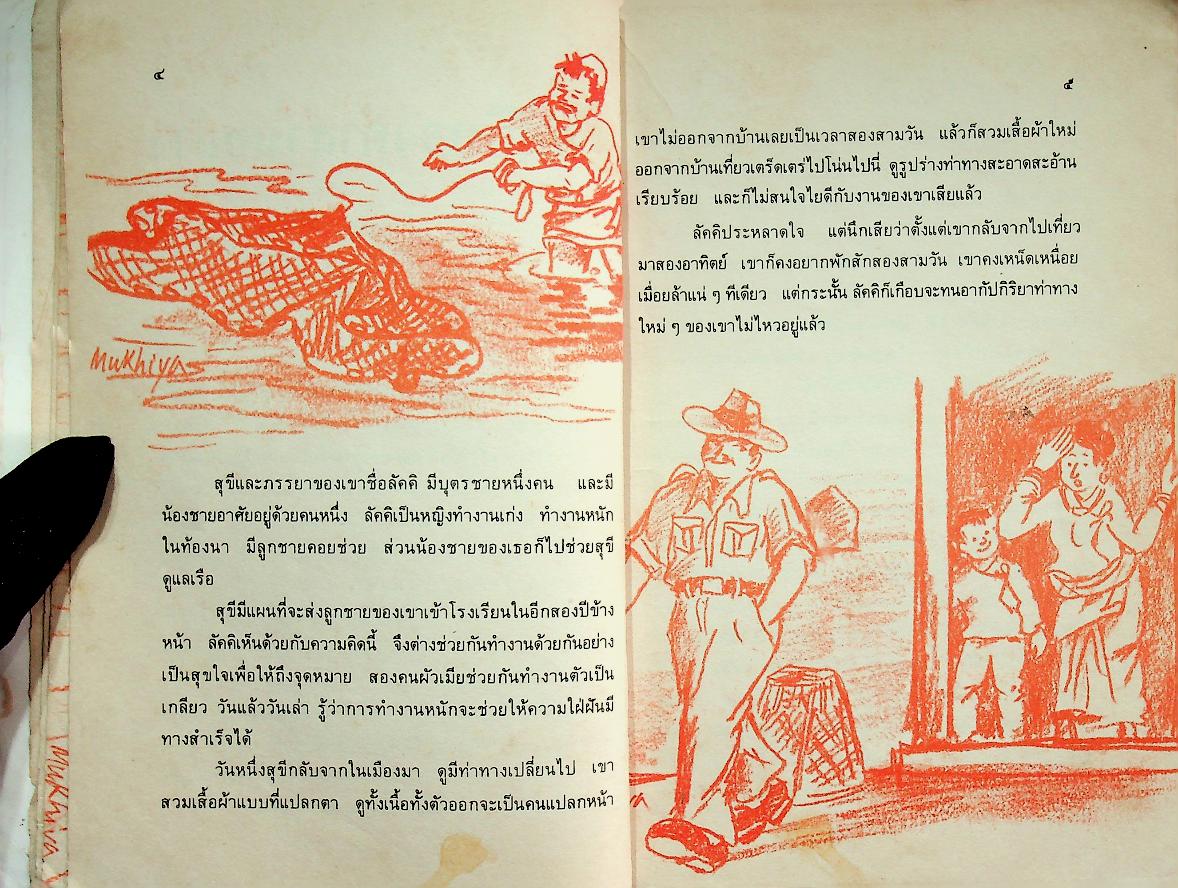 ๔
Mukhiya
สุขีและภรรยาของเขาชื่อลัคคิ มีบุตรชายหนึ่งคน และมี
น้องชายอาศัยอยู่ด้วยคนหนึ่ง ลัคคิเป็นหญิงทำงานเก่ง ทำงานหนัก
ในท้องนา มีลูกชายคอยช่วย ส่วนน้องชายของเธอก็ไปช่วยสุขี
ดูแลเรือ
สุขีมีแผนที่จะส่งลูกชายของเขาเข้าโรงเรียนในอีกสองปีข้าง
หน้า ลัคคิเห็นด้วยกับความคิดนี้ จึงต่างช่วยกันทำงานด้วยกันอย่าง
เป็นสุขใจเพื่อให้ถึงจุดหมาย สองคนผัวเมียช่วยกันทำงานตัวเป็น
เกลียว วันแล้ววันเล่า รู้ว่าการทำงานหนักจะช่วยให้ความใฝ่ฝันมี
ทางสำเร็จได้
วันหนึ่งสุขีกลับจากในเมืองมา ดูมีท่าทางเปลี่ยนไป เขา
สวมเสื้อผ้าแบบที่แปลกตา ดูทั้งเนื้อทั้งตัวออกจะเป็นคนแปลกหน้า
Mukhiya
๕
เขาไม่ออกจากบ้านเลยเป็นเวลาสองสามวัน แล้วก็สวมเสื้อผ้าใหม่
ออกจากบ้านเที่ยวเตร็ดเตร่ไปโน่นไปนี่ ดูรูปร่างท่าทางสะอาดสะอ้าน
เรียบร้อย และก็ไม่สนใจไยดีกับงานของเขาเสียแล้ว
ลัคคิประหลาดใจ แต่นึกเสียว่าตั้งแต่เขากลับจากไปเที่ยว
มาสองอาทิตย์ เขาก็คงอยากพักสักสองสามวัน เขาคงเหน็ดเหนื่อย
เมื่อยล้าแน่ ๆ ทีเดียว แต่กระนั้น ลัคคิก็เกือบจะทนอากัปกิริยาท่าทาง
ใหม่ ๆ ของเขาไม่ไหวอยู่แล้ว